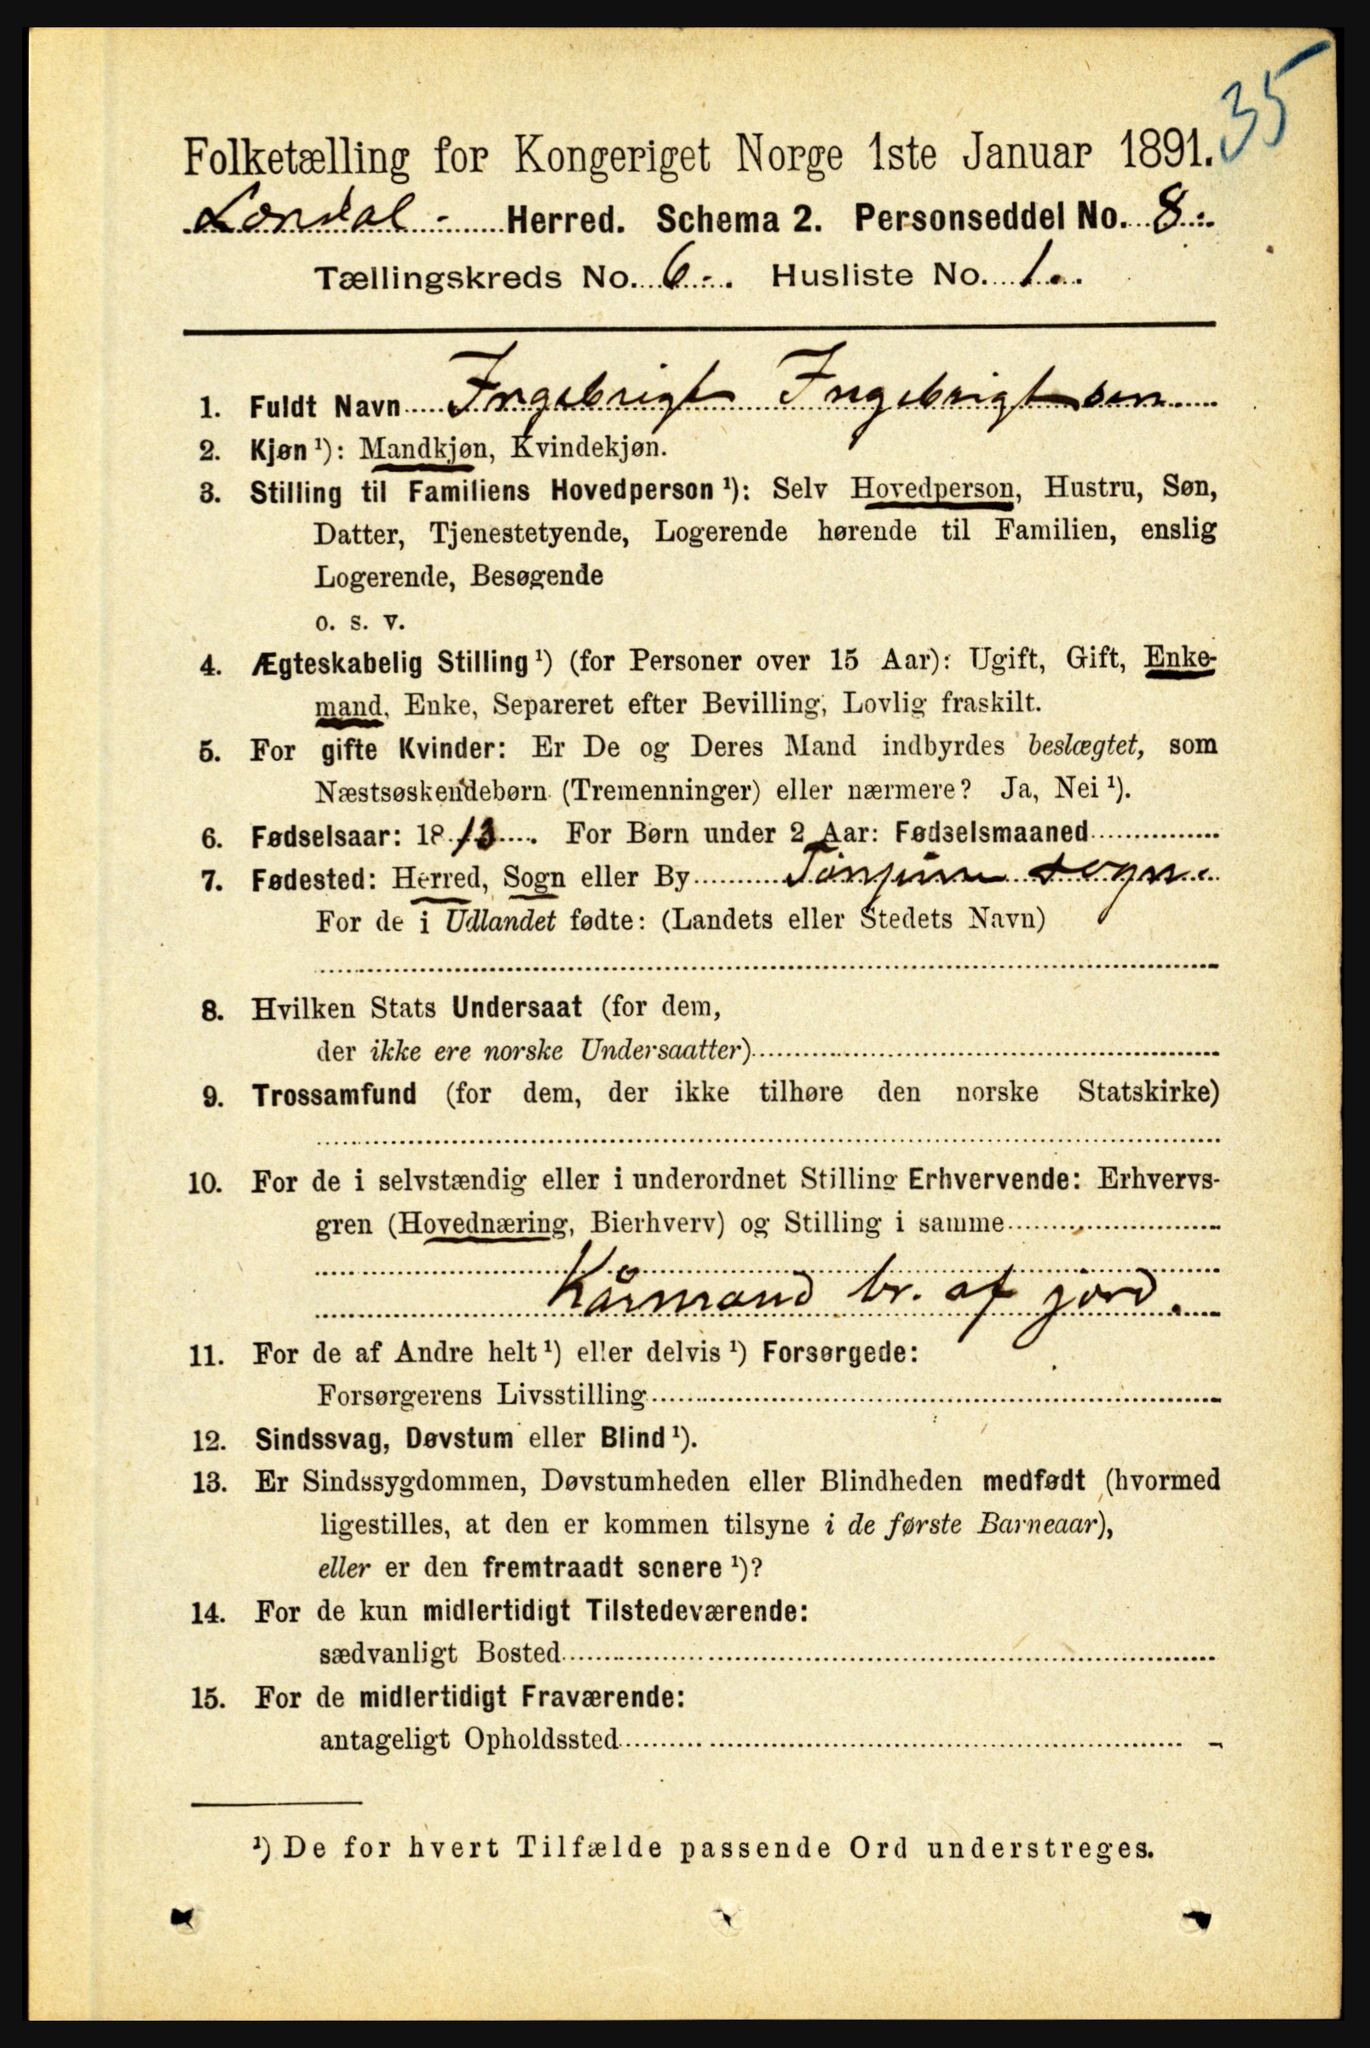 35
Folketælling for Kongeriget Norge 1ste Januar 1891.
Lærdal - Herred. Schema 2. Personseddel No. 8 -.
Tællingskreds No. 6 -. Husliste No. 1.
1. Fuldt Navn Ingebrigt Ingebrigtsen
2. Kjøn ¹): Mandkjøn, Kvindekjøn.
3. Stilling til Familiens Hovedperson ¹): Selv Hovedperson, Hustru, Søn,
Datter, Tjenestetyende, Logerende hørende til Familien, enslig
Logerende, Besøgende
o. s. v.
4. Ægteskabelig Stilling ¹) (for Personer over 15 Aar): Ugift, Gift, Enke-
mand, Enke, Separeret efter Bevilling, Lovlig fraskilt.
5. For gifte Kvinder: Er De og Deres Mand indbyrdes beslægtet, som
Næstsøskendebørn (Tremenninger) eller nærmere? Ja, Nei ¹).
6. Fødselsaar: 1813. For Børn under 2 Aar: Fødselsmaaned
7. Fødested: Herred, Sogn eller By Tønjum sogn.
For de i Udlandet fødte: (Landets eller Stedets Navn)
8. Hvilken Stats Undersaat (for dem,
der ikke ere norske Undersaatter)
9. Trossamfund (for dem, der ikke tilhøre den norske Statskirke)
10. For de i selvstændig eller i underordnet Stilling Erhvervende: Erhvervs-
gren (Hovednæring, Bierhverv) og Stilling i samme
Kårmand br. af jord.
11. For de af Andre helt ¹) eller delvis ¹) Forsørgede:
Forsørgerens Livsstilling
12. Sindssvag, Døvstum eller Blind ¹).
13. Er Sindssygdommen, Døvstumheden eller Blindheden medfødt (hvormed
ligestilles, at den er kommen tilsyne i de første Barneaar),
eller er den fremtraadt senere ¹)?
14. For de kun midlertidigt Tilstedeværende:
sædvanligt Bosted
15. For de midlertidigt Fraværende:
antageligt Opholdssted
¹) De for hvert Tilfælde passende Ord understreges.